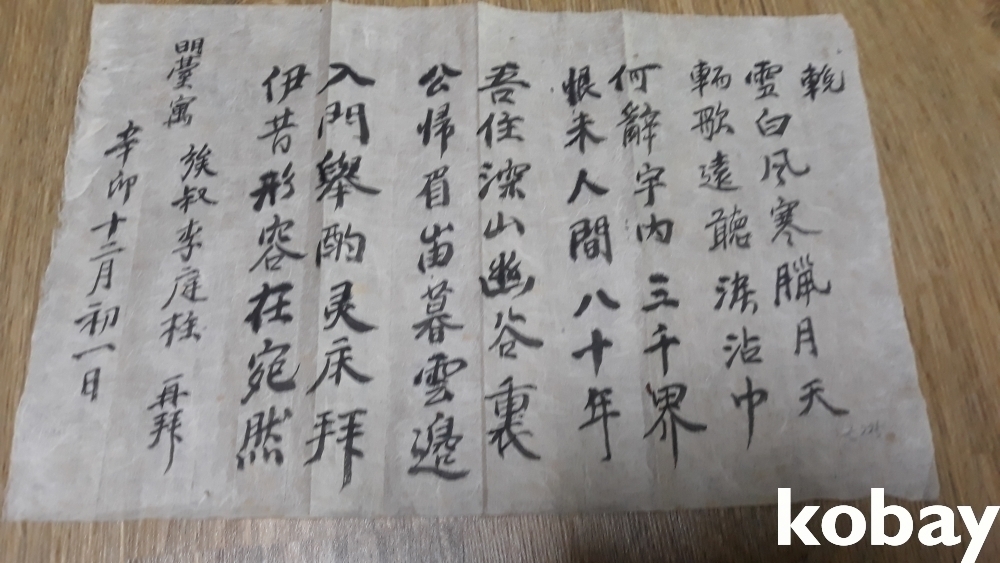 輓
雪白風寒臘月天
輀歌遠聽淚沾巾
何辭宇內三千界
恨未人間八十年
吾住深山幽谷裏
公帰眉峀暮雲邊
入門舉酌灵床拜
伊昔形容在宛然
族叔李庭柱 再拜
辛卯十二月初一日
kobay